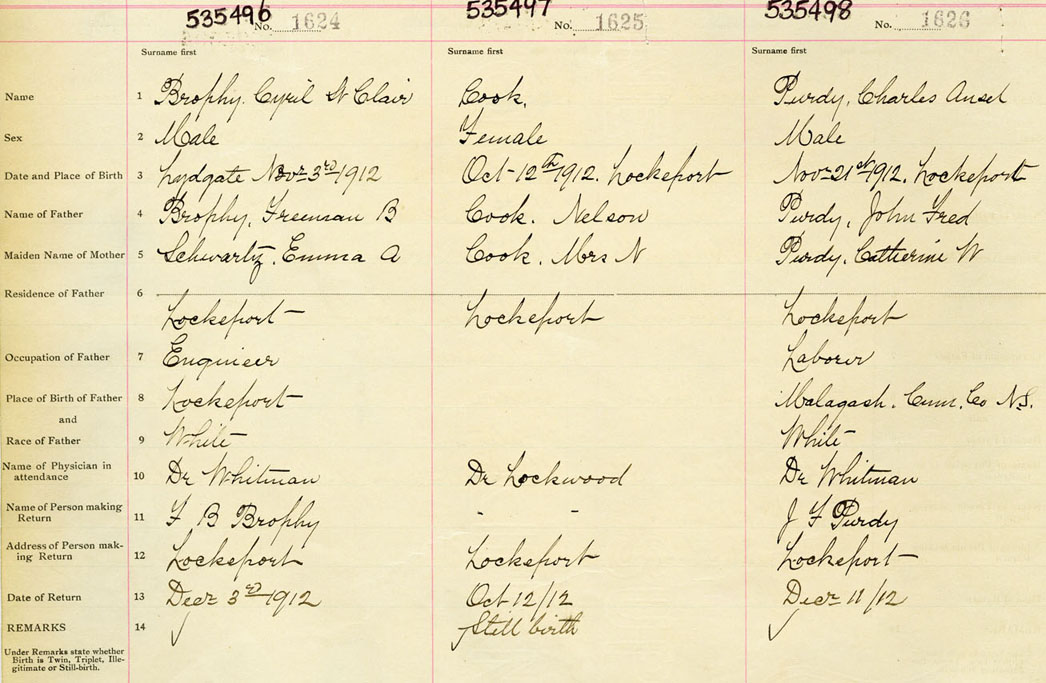 535496 535497 535498
No. 1624 No. 1625 No. 1626
Surname first Surname first Surname first
Name 1 Brophy. Cyril St Clair Cook. Purdy. Charles Ansel
Sex 2 Male Female Male
Date and Place of Birth 3 Lydgate Nov 3rd 1912 Oct-12th 1912. Lockeport Nov 21st 1912. Lockeport
Name of Father 4 Brophy, Freeman B Cook. Nelson Purdy, John Fred
Maiden Name of Mother 5 Schwartz. Emma A Cook. Mrs N Purdy. Catherine W
Residence of Father 6
Lockeport Lockeport Lockeport
Occupation of Father 7 Engineer Laborer
Place of Birth of Father 8 Lockeport Malagash. Cum. Co N.S.
and
Race of Father 9 White White
Name of Physician in
attendance 10 Dr Whitman Dr Lockwood Dr Whitman
Name of Person making
Return 11 F B Brophy - - J F Purdy
Address of Person mak-
ing Return 12 Lockeport Lockeport Lockeport
Date of Return 13 Decr 3rd 1912 Oct 12/12 Decr 11/12
REMARKS 14 Still birth
Under Remarks state whether
Birth is Twin, Triplet, Ille-
gitimate or Still-birth.